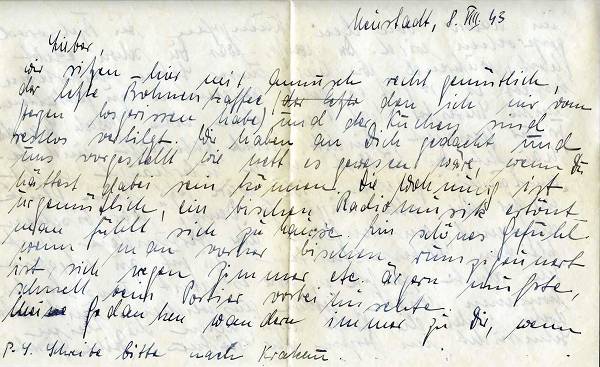 Neustadt, 8. VIII. 43
Lieber,
wir sitzen hier mit recht gemütlich,
der letzte Bohnenkaffee (der letzte den ich mir vom
losgerissen habe) und der Kuchen sind
restlos vertilgt. Wir haben an Dich gedacht und
uns vorgestellt wie nett es gewesen wäre, wenn Du
hättest dabei sein können. Die Wohnung ist
urgemütlich, ein bischen Radiomusik ertönt
man fühlt sich zu hause. Ein schönes Gefühl
wenn man vorher bischen rumzigeunert
ist sich wegen Zimmer etc. ärgern musste,
schnell beim Portier vorbei huschte.
Meine Gedanken wandern immer zu Dir, wenn
P.S. Schreibe bitte nach Krakau.